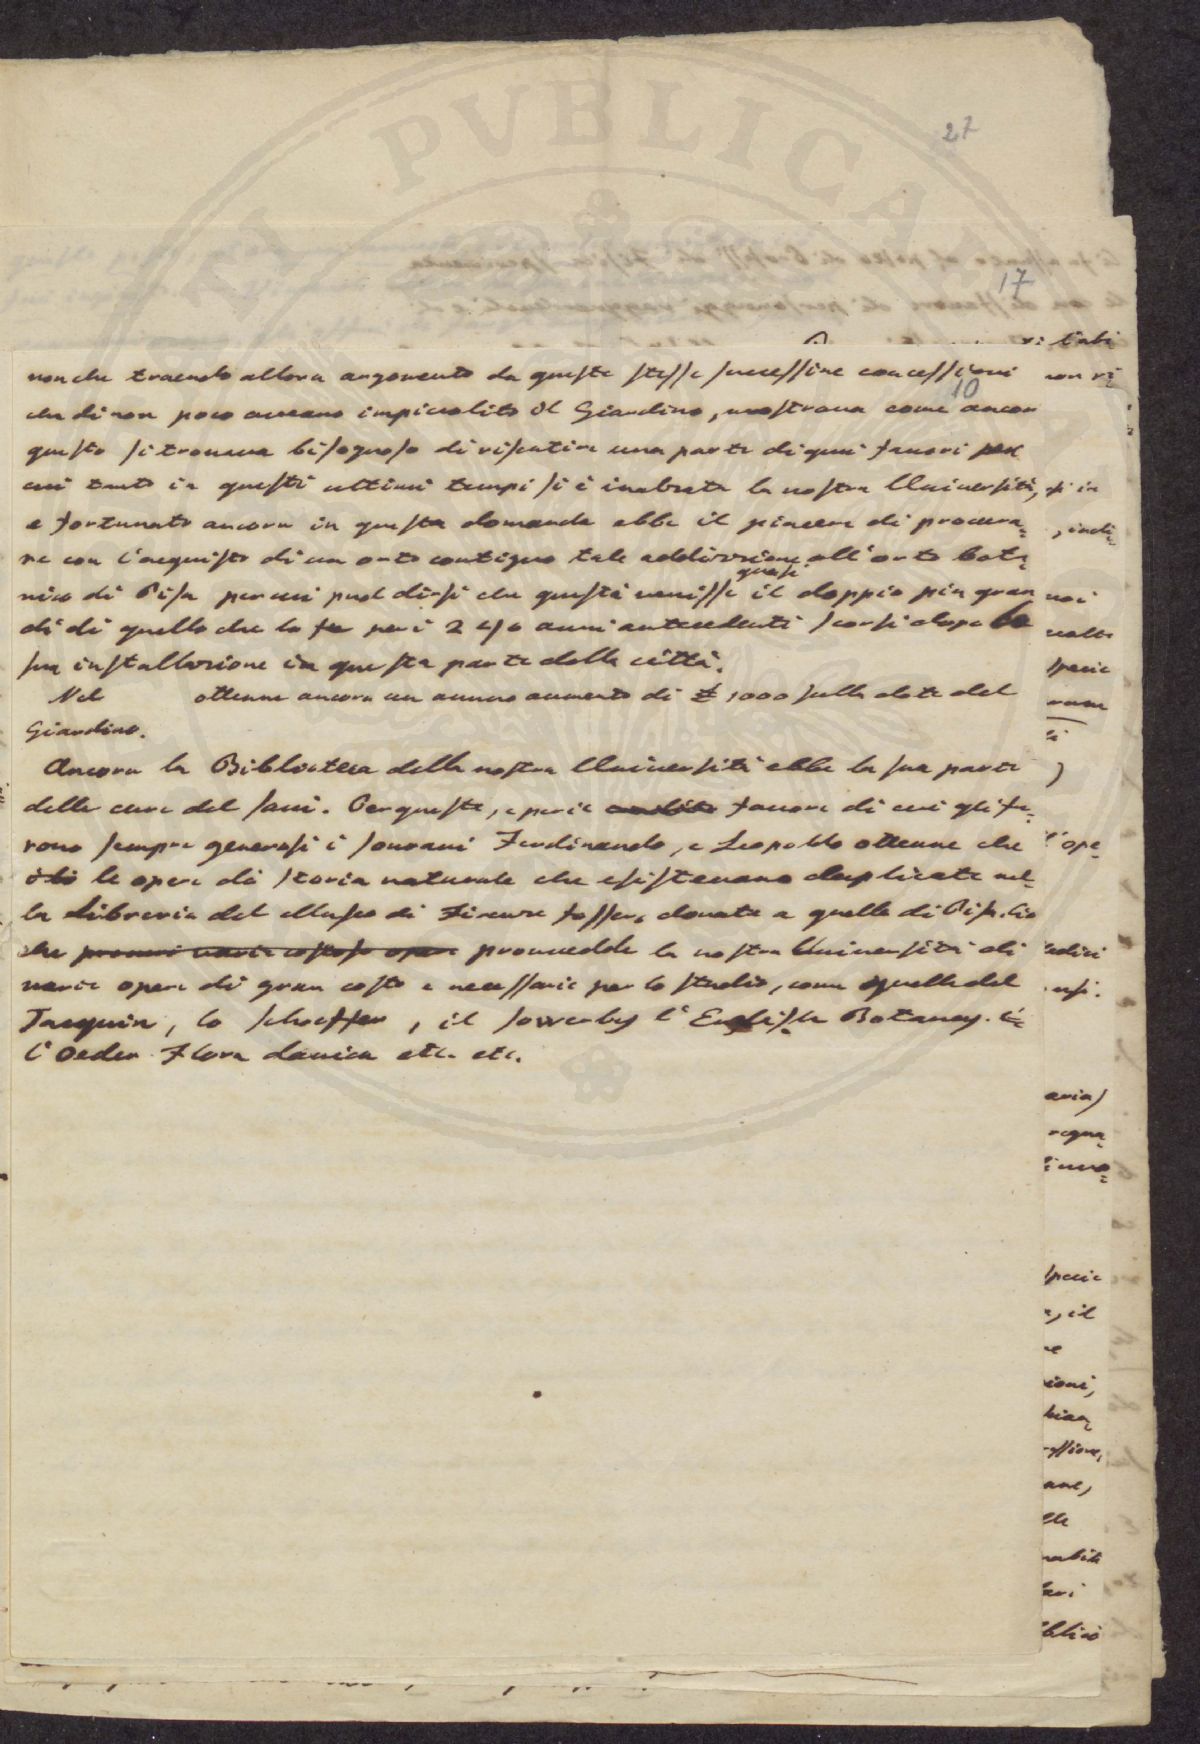 PVBLICA
27
17
10
nonche traendo allora argomento da queste stesse successive concessioni
che di non poco aveano impiccolito il Giardino, mostrava come ancor
questo si trovava bisognoso di risentire una parte di quei favori per
cui tanto in questi ultimi tempi si è inalzata la nostra Università,
e fortunato ancora in questa domanda ebbe il piacere di procura=
re con l'acquisto di un orto contiguo tale addizzione all'orto bota=
nico di Pisa per cui puol dirsi che questa venisse quasi il doppio più gran
di di quello che lo fu per i 240 anni antecedenti scorsi dopo la
sua installazione in questa parte della città.
Nel ottenne ancora un annuo aumento di £ 1000 sulla dote del
Giardino.
Ancora la Biblioteca della nostra Università ebbe la sua parte
delle cure del Savi. Per queste, e per il favore di cui gli fu=
rono sempre generosi i sovrani Ferdinando, e Leopoldo ottenne che
le opere di storia naturale che esistevano duplicate nel=
la Libreria del Museo di Firenze fosser donate a quella di Pisa,
che provvedde la nostra Università di
varie opere di gran costo e necessarie per lo studio, come quelle del
Jacquin, lo Schoeffer, il Sowerby l'English Botaney.
l'Oeder Flora danica etc. etc.